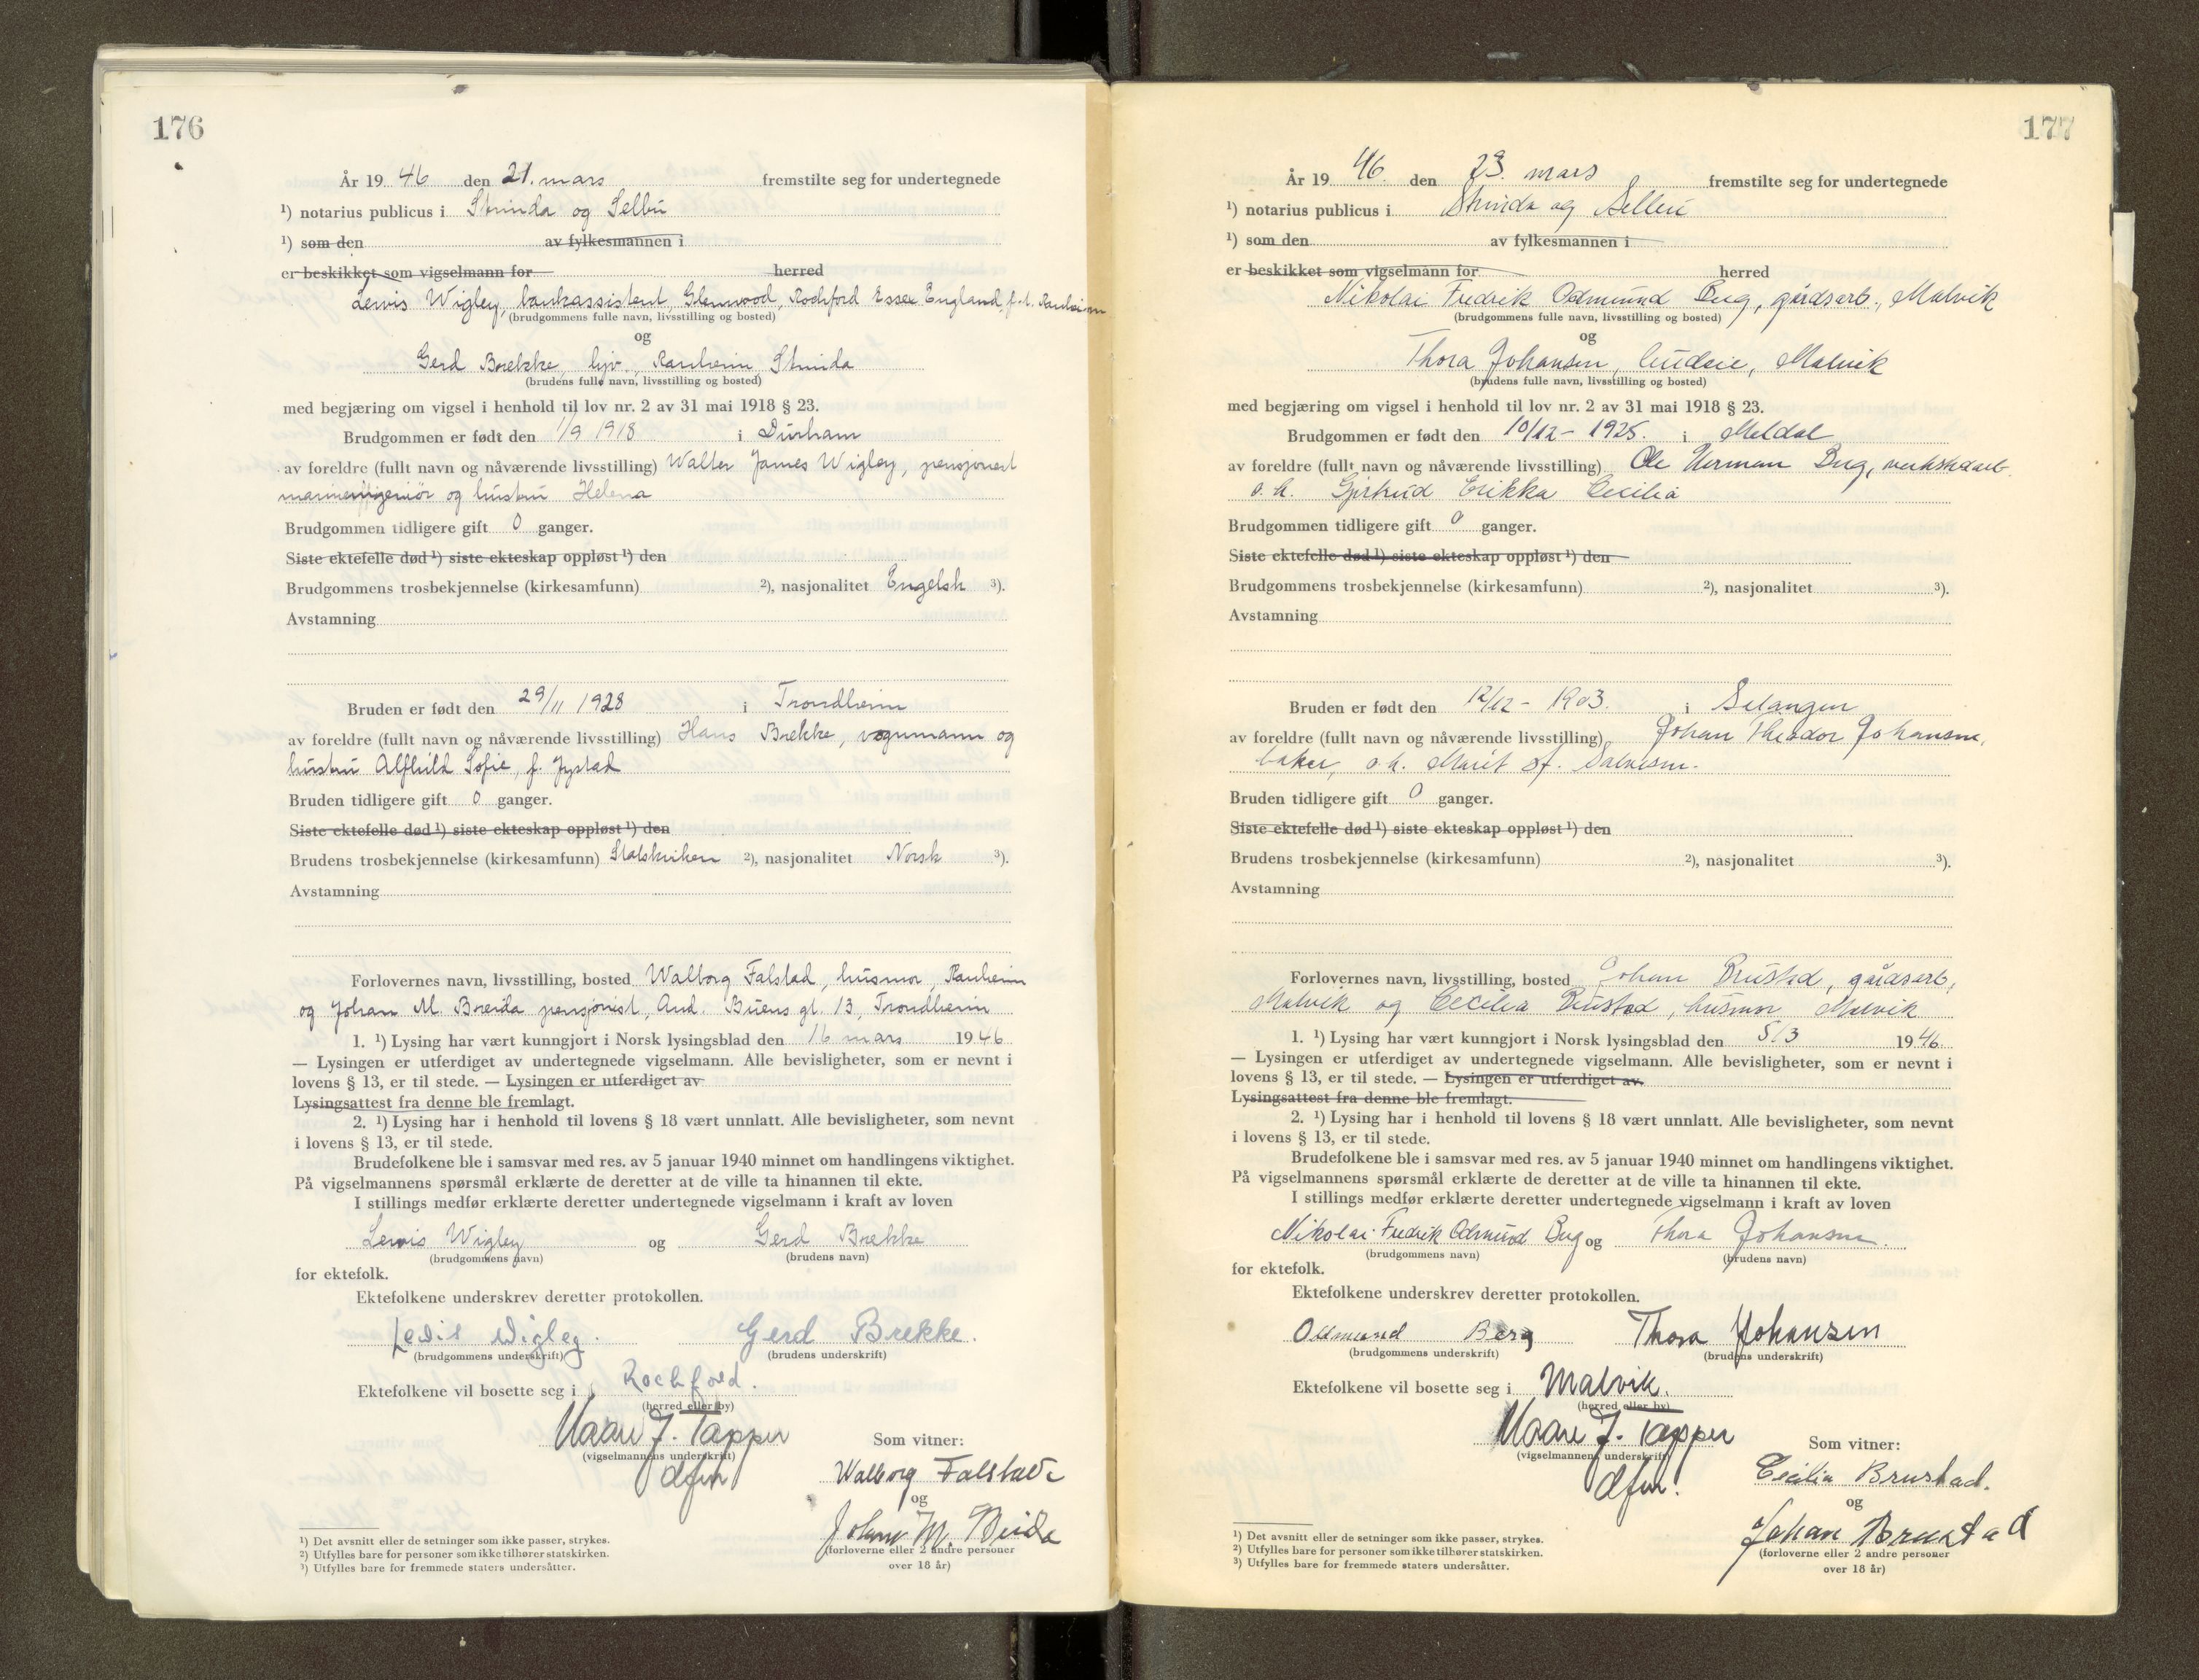 176
År 19 46 den 21. mars fremstilte seg for undertegnede
¹) notarius publicus i Strinda og Selbu
¹) som den av fylkesmannen i
er beskikket som vigselmann for herred
Lewis Wigley, bankassistent, Glenwood, Rochford Essex England, f.t. Ranheim
(brudgommens fulle navn, livsstilling og bosted)
og
Gerd Brekke, hjv., Ranheim, Strinda
(brudens fulle navn, livsstilling og bosted)
med begjæring om vigsel i henhold til lov nr. 2 av 31 mai 1918 § 23.
Brudgommen er født den 1/9 1918 i Durham
av foreldre (fullt navn og nåværende livsstilling) Walter James Wigley, pensjonert
marineingeniør og hustru Helena
Brudgommen tidligere gift 0 ganger.
Siste ektefelle død ¹) siste ekteskap oppløst ¹) den
Brudgommens trosbekjennelse (kirkesamfunn) ²), nasjonalitet Engelsk ³).
Avstamning
Bruden er født den 29/11 1928 i Trondheim
av foreldre (fullt navn og nåværende livsstilling) Hans Brekke, vognmann og
hustru Alfhild Sofie, f. Jystad
Bruden tidligere gift 0 ganger.
Siste ektefelle død ¹) siste ekteskap oppløst ¹) den
Brudens trosbekjennelse (kirkesamfunn) Statskirken ²), nasjonalitet Norsk ³).
Avstamning
Forlovernes navn, livsstilling, bosted Walborg Falstad, husmor, Ranheim
og Johan M. Breida pensjonist, And. Buens gt. 13, Trondheim
1. ¹) Lysing har vært kunngjort i Norsk lysingsblad den 16 mars 19 46
— Lysingen er utferdiget av undertegnede vigselmann. Alle bevisligheter, som er nevnt i
lovens § 13, er til stede. — Lysingen er utferdiget av
Lysingsattest fra denne ble fremlagt.
2. ¹) Lysing har i henhold til lovens § 18 vært unnlatt. Alle bevisligheter, som nevnt
i lovens § 13, er til stede.
Brudefolkene ble i samsvar med res. av 5 januar 1940 minnet om handlingens viktighet.
På vigselmannens spørsmål erklærte de deretter at de ville ta hinannen til ekte.
I stillings medfør erklærte deretter undertegnede vigselmann i kraft av loven
Lewis Wigley og Gerd Brekke
(brudgommens navn) (brudens navn)
for ektefolk.
Ektefolkene underskrev deretter protokollen.
Lewis Wigley. Gerd Brekke.
(brudgommens underskrift) (brudens underskrift)
Ektefolkene vil bosette seg i Rochford.
(herred eller by)
Kaare J. Tapper
(vigselmannens underskrift)
dfm
Som vitner:
Walborg Falstad
og
Johan M. Breida
(forloverne eller 2 andre personer
over 18 år)
¹) Det avsnitt eller de setninger som ikke passer, strykes.
²) Utfylles bare for personer som ikke tilhører statskirken.
³) Utfylles bare for fremmede staters undersåtter.
177
År 19 46. den 23. mars fremstilte seg for undertegnede
¹) notarius publicus i Strinda og Selbu
¹) som den av fylkesmannen i
er beskikket som vigselmann for herred
Nikolai Fredrik Odmund Berg, gårdsarb., Malvik
(brudgommens fulle navn, livsstilling og bosted)
og
Thora Johansen, budeie, Malvik
(brudens fulle navn, livsstilling og bosted)
med begjæring om vigsel i henhold til lov nr. 2 av 31 mai 1918 § 23.
Brudgommen er født den 10/12 - 1925. i Meldal
av foreldre (fullt navn og nåværende livsstilling) Ole Herman Berg, verkstedarb.
o. h. Gjertrud Erikka Cecilia
Brudgommen tidligere gift 0 ganger.
Siste ektefelle død ¹) siste ekteskap oppløst ¹) den
Brudgommens trosbekjennelse (kirkesamfunn) ²), nasjonalitet ³).
Avstamning
Bruden er født den 12/12 - 1903. i Selanger
av foreldre (fullt navn og nåværende livsstilling) Johan Theodor Johansen,
baker, o.h. Marit f. Salvesen.
Bruden tidligere gift 0 ganger.
Siste ektefelle død ¹) siste ekteskap oppløst ¹) den
Brudens trosbekjennelse (kirkesamfunn) ²), nasjonalitet ³).
Avstamning
Forlovernes navn, livsstilling, bosted Johan Brustad, gårdsarb,
Malvik og Cecilia Brustad, husmor Malvik
1. ¹) Lysing har vært kunngjort i Norsk lysingsblad den 5/3 19 46.
— Lysingen er utferdiget av undertegnede vigselmann. Alle bevisligheter, som er nevnt i
lovens § 13, er til stede. — Lysingen er utferdiget av
Lysingsattest fra denne ble fremlagt.
2. ¹) Lysing har i henhold til lovens § 18 vært unnlatt. Alle bevisligheter, som nevnt
i lovens § 13, er til stede.
Brudefolkene ble i samsvar med res. av 5 januar 1940 minnet om handlingens viktighet.
På vigselmannens spørsmål erklærte de deretter at de ville ta hinannen til ekte.
I stillings medfør erklærte deretter undertegnede vigselmann i kraft av loven
Nikolai Fredrik Odmund Berg og Thora Johansen.
(brudgommens navn) (brudens navn)
for ektefolk.
Ektefolkene underskrev deretter protokollen.
Odmund Berg Thora Johansen
(brudgommens underskrift) (brudens underskrift)
Ektefolkene vil bosette seg i Malvik.
(herred eller by)
Kaare J. Tapper
(vigselmannens underskrift)
dfm.
Som vitner:
Cecilia Brustad.
og
Johan Brustad
(forloverne eller 2 andre personer
over 18 år)
¹) Det avsnitt eller de setninger som ikke passer, strykes.
²) Utfylles bare for personer som ikke tilhører statskirken.
³) Utfylles bare for fremmede staters undersåtter.